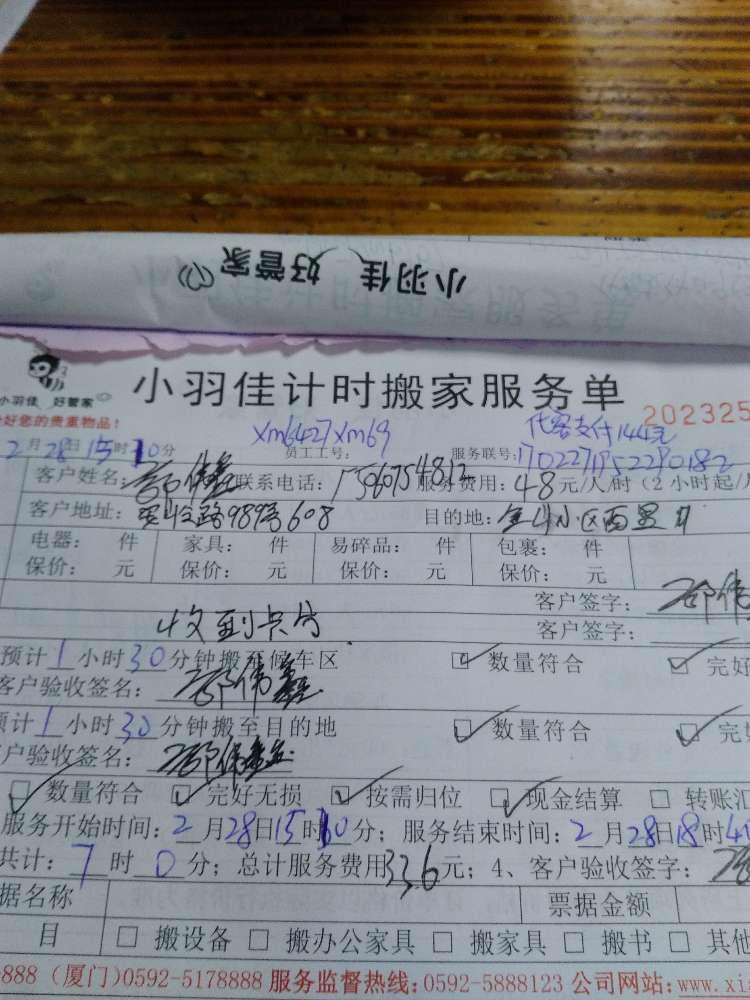 小羽佳 好管家
小羽佳 好管家
小羽佳计时搬家服务单
好您的贵重物品！
202325
代客支付144元
Xm6427 Xm69
2月28日15时10分 员工工号： 服务联号：1702271952290182
客户姓名： 联系电话： 服务费用：48元/人/时（2小时起/
客户地址： 989号608 目的地：金斗小区西里
电器： 件 家具： 件 易碎品： 件 包裹： 件
保价： 元 保价： 元 保价： 元 保价： 元
客户签字：邵伟
收到卡片 客户签字：
预计1小时30分钟搬至候车区 ☑ 数量符合 ☑ 完好
客户验收签名：邵伟鑫
预计1小时30分钟搬至目的地 ☑ 数量符合 ☑ 完好
客户验收签名：邵伟鑫
☑ 数量符合 ☑ 完好无损 ☑ 按需归位 ☑ 现金结算 □ 转账汇
服务开始时间：2月28日15时10分；服务结束时间：2月28日18时4
共计：7时0分；总计服务费用336元；4、客户验收签字：
据名称 票据金额
目 □ 搬设备 □ 搬办公家具 □ 搬家具 □ 搬书 □ 其他
888（厦门）0592-5178888 服务监督热线：0592-5888123 公司网站：www.xi